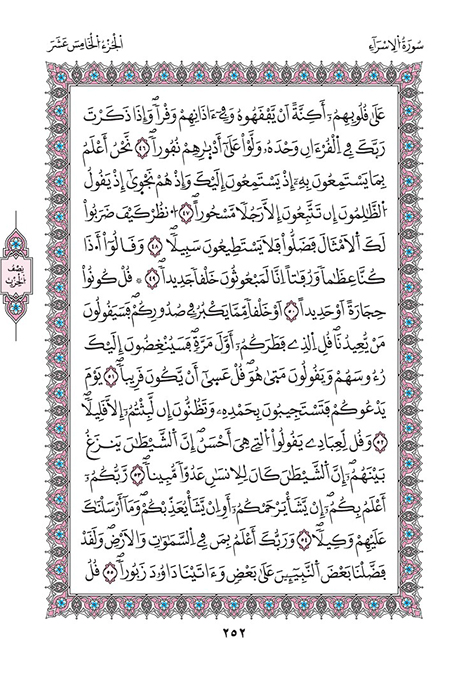 سُورَةُ الْإِسْرَاءِ
الْجُزْءُ الْخَامِسَ عَشَرَ
عَلَىٰ قُلُوبِهِمُۥٓ أَكِنَّةً أَنْ يَّفْقَهُوهُ وَفِےٓ ءَاذَانِهِمْ وَقْراٗۖ وَإِذَا ذَكَرْتَ
رَبَّكَ فِے اِ۬لْقُرْءَانِ وَحْدَهُۥ وَلَّوْاْ عَلَىٰٓ أَدْبٰ۪رِهِمْ نُفُوراٗۖ ٤٦ نَّحْنُ أَعْلَمُ
بِمَا يَسْتَمِعُونَ بِهِۦٓ إِذْ يَسْتَمِعُونَ إِلَيْكَ وَإِذْ هُمْ نَجْو۪ىٰٓ إِذْ يَقُولُ
اُ۬لظَّٰلِمُونَ إِن تَتَّبِعُونَ إِلَّا رَجُلاٗ مَّسْحُوراًۖ ٤٧ اُ۟نظُرْ كَيْفَ ضَرَبُواْ
لَكَ اَ۬لْأَمْثَالَ فَضَلُّواْ فَلَا يَسْتَطِيعُونَ سَبِيلاٗۖ ٤٨ وَقَالُوٓاْ أَ.ذَا
كُنَّا عِظَٰماٗ وَرُفَٰتاً اِنَّا لَمَبْعُوثُونَ خَلْقاٗ جَدِيداٗۖ ٤٩ قُلْ كُونُواْ
حِجَارَةً اَوْ حَدِيداً ٥٠ اَوْ خَلْقاٗ مِّمَّا يَكْبُرُ فِے صُدُورِكُمْۖ فَسَيَقُولُونَ
مَنْ يُّعِيدُنَاۖ قُلِ اِ۬لذِے فَطَرَكُمُۥٓ أَوَّلَ مَرَّةٖۖ فَسَيُنْغِضُونَ إِلَيْكَ
رُءُوسَهُمْ وَيَقُولُونَ مَتَىٰ هُوَۖ قُلْ عَسَىٰٓ أَنْ يَّكُونَ قَرِيباٗۖ ٥١ يَوْمَ
يَدْعُوكُمْ فَتَسْتَجِيبُونَ بِحَمْدِهِۦ وَتَظُنُّونَ إِن لَّبِثْتُمُۥٓ إِلَّا قَلِيلاٗۖ
٥٢ وَقُل لِّعِبَادِے يَقُولُواْ اُ۬لتِے هِيَ أَحْسَنُۖ إِنَّ اَ۬لشَّيْطَٰنَ يَنزَغُ
بَيْنَهُمُۥٓۖ إِنَّ اَ۬لشَّيْطَٰنَ كَانَ لِلْإِنسَٰنِ عَدُوّاٗ مُّبِيناٗۖ ٥٣ رَّبُّكُمُۥٓ
أَعْلَمُ بِكُمُۥٓۖ إِنْ يَّشَأْ يَرْحَمْكُمُۥٓ أَوِ اِنْ يَّشَأْ يُعَذِّبْكُمْۖ وَمَآ أَرْسَلْنَٰكَ
عَلَيْهِمْ وَكِيلاٗۖ ٥٤ وَرَبُّكَ أَعْلَمُ بِمَن فِے اِ۬لسَّمَٰوَٰتِ وَالْأَرْضِۖ وَلَقَدْ
فَضَّلْنَا بَعْضَ اَ۬لنَّبِيٓـِٕۧنَ عَلَىٰ بَعْضٖ وَءَاتَيْنَا دَاوُۥدَ زَبُوراٗۖ ٥٥ قُلُ
نِصْفُ
الْحِزْبِ
٢٥٢